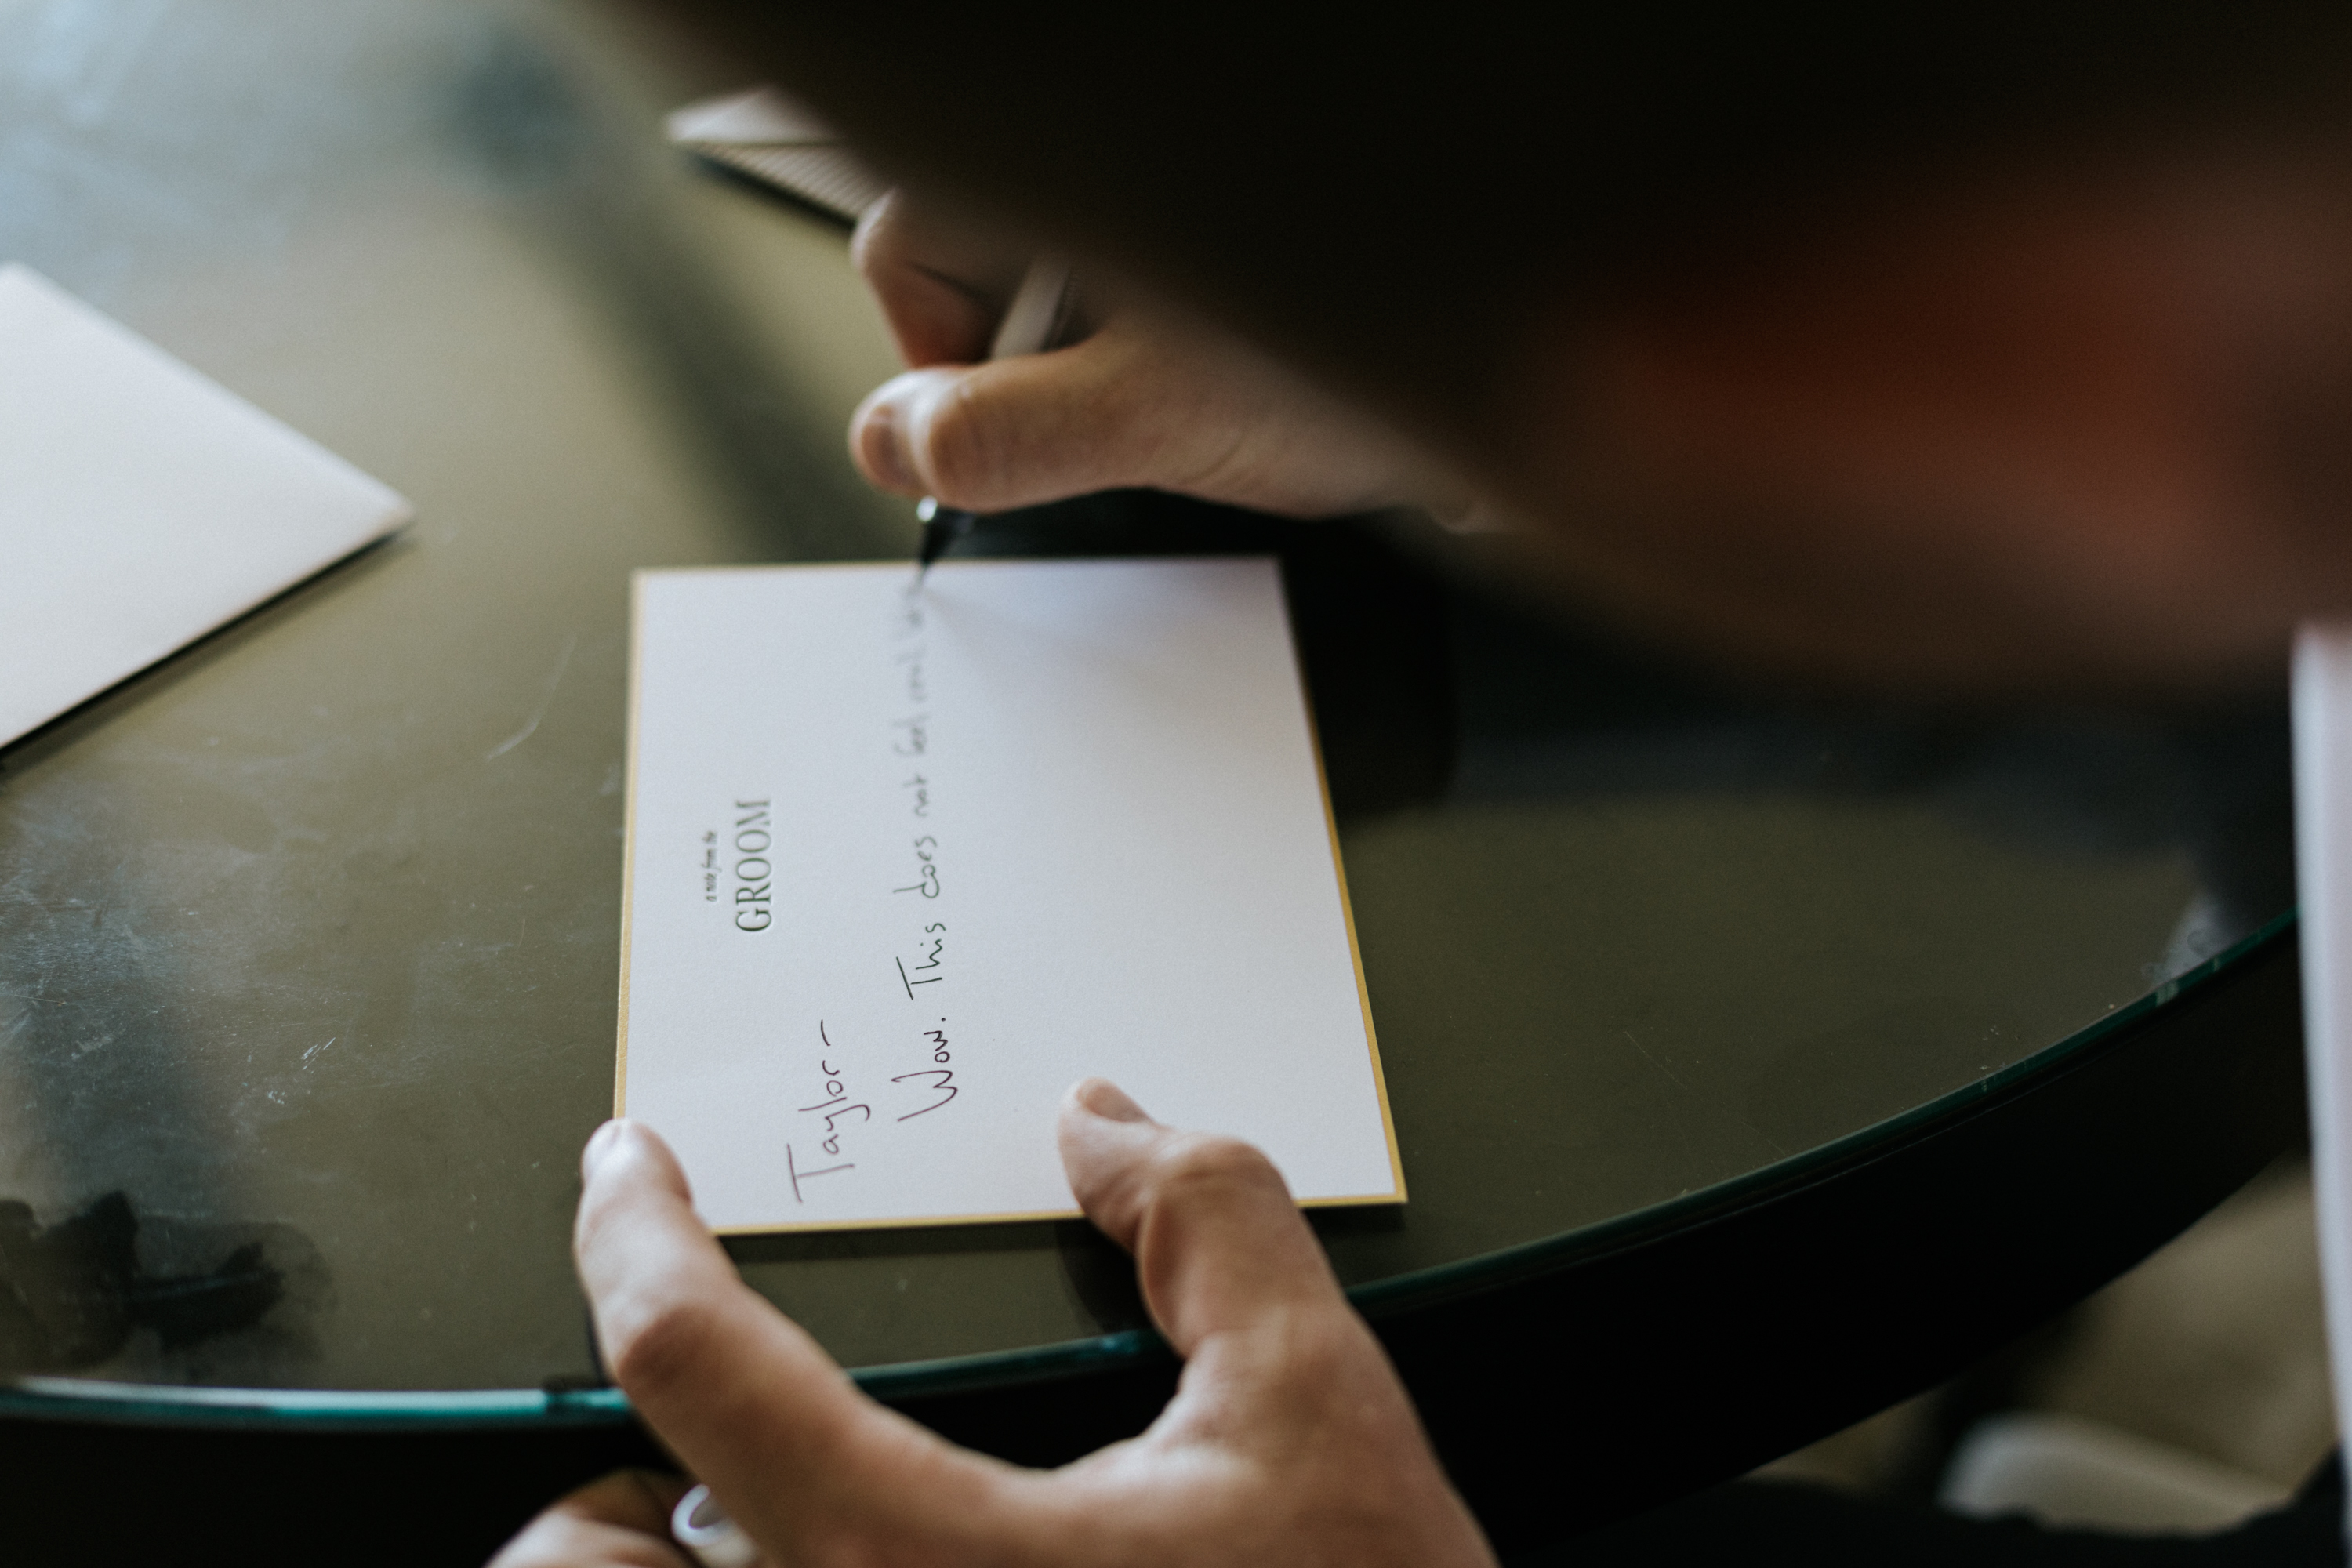 a note from the
GROOM
Taylor –
Wow. This does not feel real